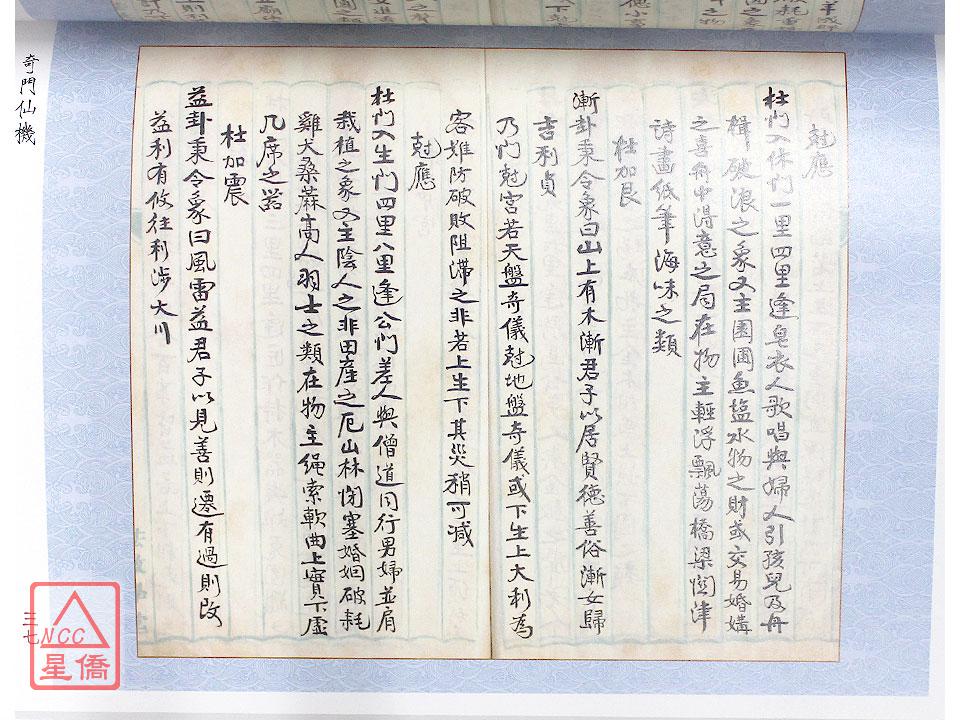 尅應
杜門入休門一里四里逢皂衣人歌唱與婦人引孩兒及舟
楫破浪之象又主園圃魚塩水物之財或交易婚媾
之喜術中得意之局在物主輕浮飄蕩橋梁関津
詩畫紙筆海味之類
杜加艮
漸卦秉令象曰山上有木漸君子以居賢德善俗漸女歸
吉利貞
乃門尅宮若天盤奇儀尅地盤奇儀或下生上大利為
客难防破敗阻滞之非若上生下其災稍可減
尅應
杜門入生門四里八里逢公門差人與僧道同行男婦並肩
栽植之象又主陰人之非田産之厄山林閉塞婚姻破耗
雞犬桑蔴高人羽士之類在物主繩索軟曲上實下虛
几席之器
杜加震
益卦秉令象曰風雷益君子以見善則遷有過則改
益利有攸往利涉大川
奇門仙機
三七
NCC
星僑